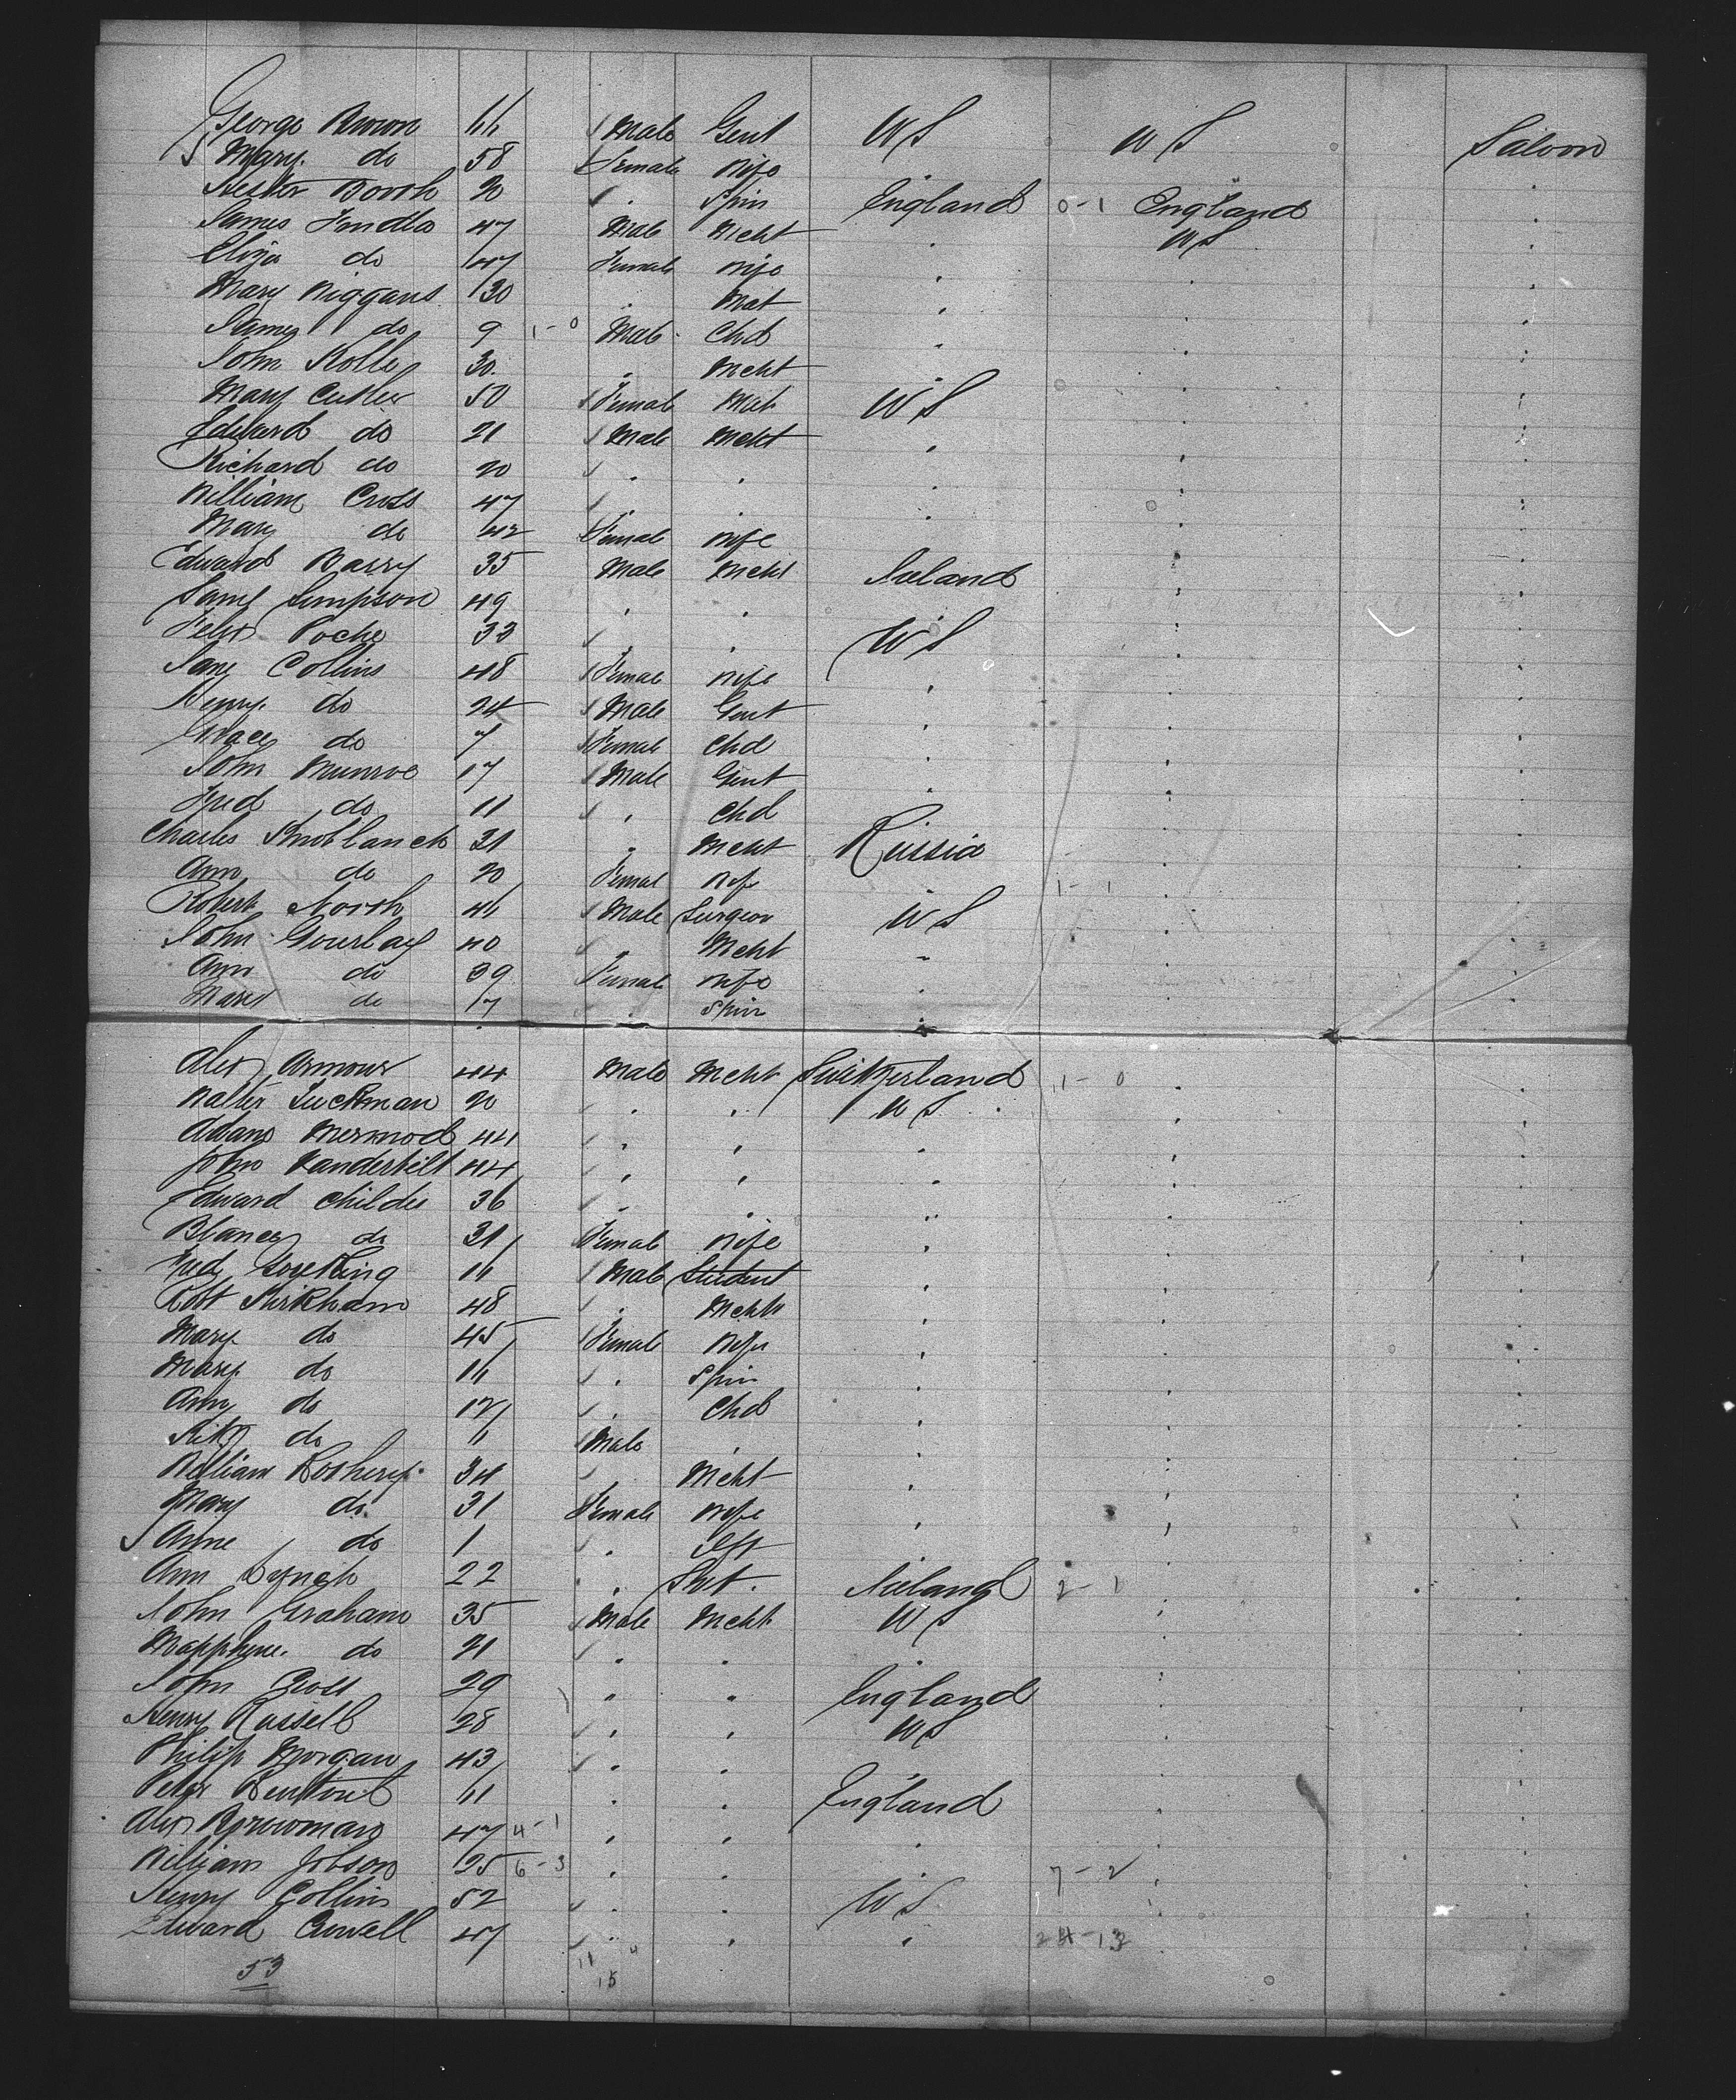 George Brown 66 Male Gent US US Saloon
Mary do 58 Female Wife
Hester Booth 20 " Spin England 0-1 England "
James 47 Male Mcht " US "
Eliza do 47 Female Wife " " "
Mary Wiggans 30 " Mat " " "
James do 9 1-0 Male Chd " " "
John 30 " Mcht " " "
Mary Cutler 50 Female Mat US " "
Edward do 21 Male Mcht " " "
Richard do 20 " " " " "
William Cross 47 " " " " "
Mary do 42 Female Wife " "
Edward Barry 35 Male Mcht Ireland " "
Simpson 49 " " " "
Felix Poche 33 " " US " "
Jane Collins 48 Female Wife " " "
Henry do 24 Male Gent " " "
Grace do 7 Female Chd " " "
John Munroe 17 Male Gent " " "
Fred do 11 " Chd " "
Charles 31 " Mcht Russia " "
Ann do 20 Female Wife 1-1 " "
Robert North 46 Male Surgeon US " "
John Gourlay 40 " Mcht " " "
Ann do 39 Female Wife " " "
do 17 " Spin " " "
Alex Armour 44 Male Mcht Switzerland 1-0 " "
Walter Luckman 20 " " US " "
Mermod 44 " " " " "
John Vanderbilt 44 " " " " "
Edward Childe 36 " " " " "
do 31 Female Wife " " "
Fred 16 Male Student " " "
Robt Kirkham 48 " Mcht " " "
Mary do 45 Female Wife " " "
Mary do 16 " Spin " " "
Ann do 12 " Chd " " "
do Male " " " "
William 34 " Mcht " " "
Mary do 31 Female Wife " " "
Anne do 1 " " " "
Ann Lynch 22 " Svt. Ireland 2-1 " "
John Graham 35 Male Mcht US " "
do 21 " " " " "
John 29 " " England " "
Henry Russell 28 " " US " "
Philip Morgan 43 " " " " "
Peter 61 " " England " "
Alex 47 4-1 " " " " "
William Jobson 25 6-3 " " " 7-2 " "
Henry Collins 52 " " US " "
Edward 47 " " " 24-13 "
53 11 4
15